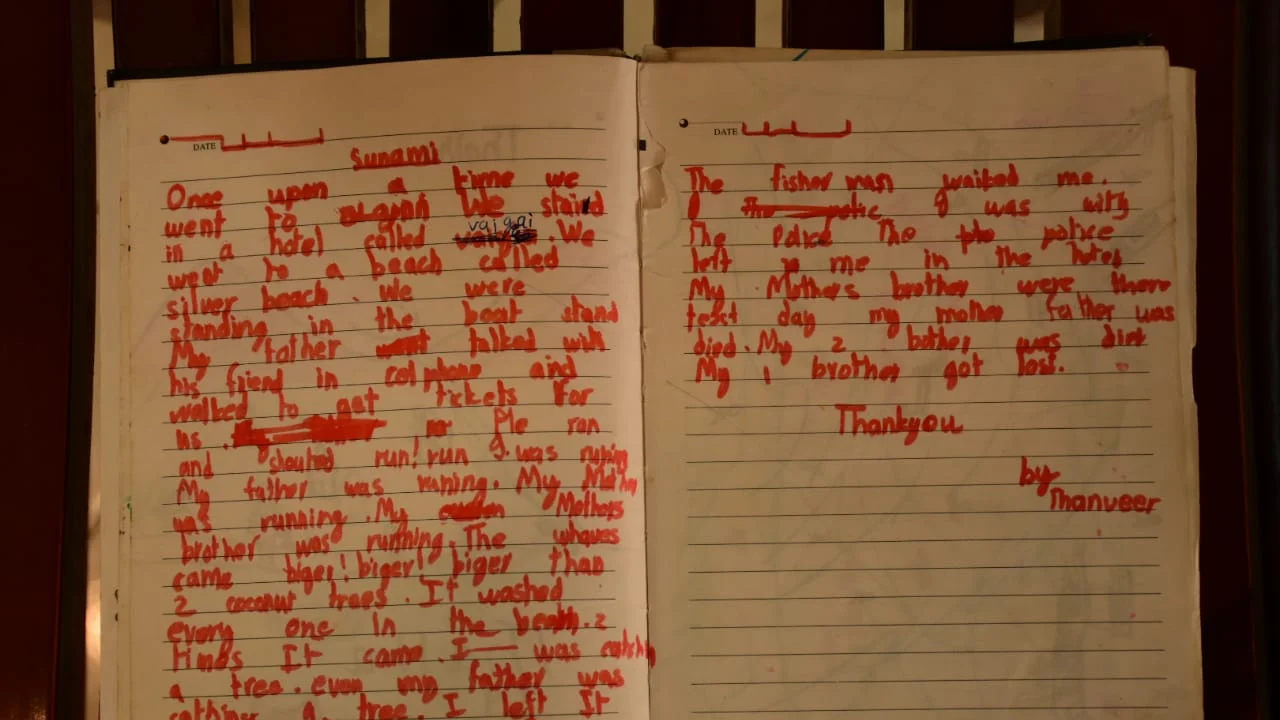 DATE
Sunami
Once upon a time we
went to We staied
vaigai
in a hotel called . We
went to a beach called
silver beach . We were
standing in the boat stand
My father talked with
his friend in cal phone and
walked to get tickets For
us . Ple ran
and shouted run! run I was runing
My father was runing. My Mother
was running . My Mothers
brother was running. The whaves
came biger! biger! biger than
2 coconut trees . It washed
every one in the beath. 2
times It came . I was catching
a tree. even my father was
cathing a tree. I left It
DATE
The fisher man waited me.
I was with
The police The police
left me in the hotel
My Mothers brother were there
text day my mother father was
died. My 2 bother was died
My 1 brother got lost.
Thankyou
by
Thanveer